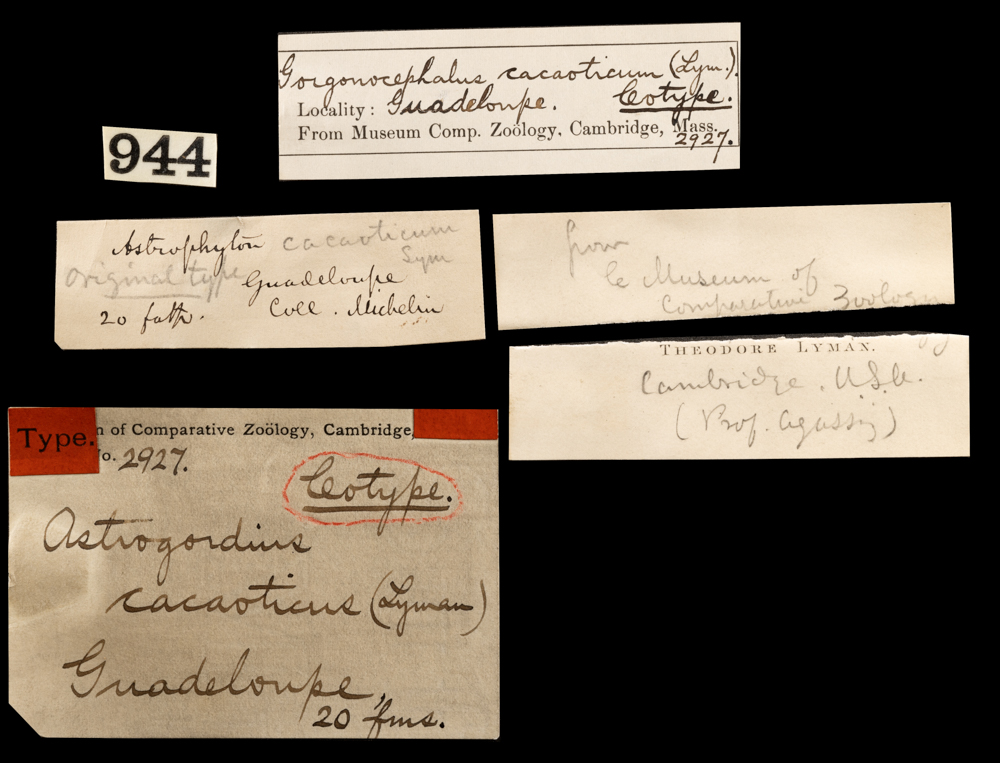 Gorgonocephalus cacaoticum (Lym.).
Locality: Guadeloupe. Cotype.
From Museum Comp. Zoölogy, Cambridge, Mass.
2927.
944
Astrophyton cacaoticum
Lym
Original type Guadeloupe
20 fath. Coll. Michelin
from
Museum of
Comparative Zoology
THEODORE LYMAN.
Cambridge. U.S.A.
(Prof. Agassiz)
Type.
n of Comparative Zoölogy, Cambridge,
o. 2927.
Cotype.
Astrogordius
cacaoticus (Lyman)
Guadeloupe,
20 fms.